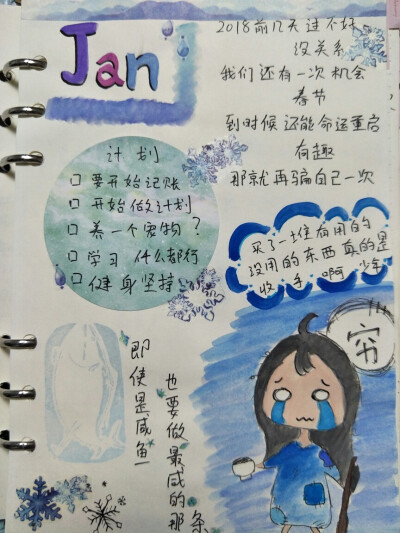 Jan
2018前几天过不好
没关系
我们还有一次机会
春节
到时候还能命运重启
有趣
那就再骗自己一次
计划
要开始记账
开始做计划
养一个宠物?
学习 什么都行
健身坚持
买了一堆有用的
没用的东西真的是
收手啊 少年
穷
即使是咸鱼
也要做最咸的那条